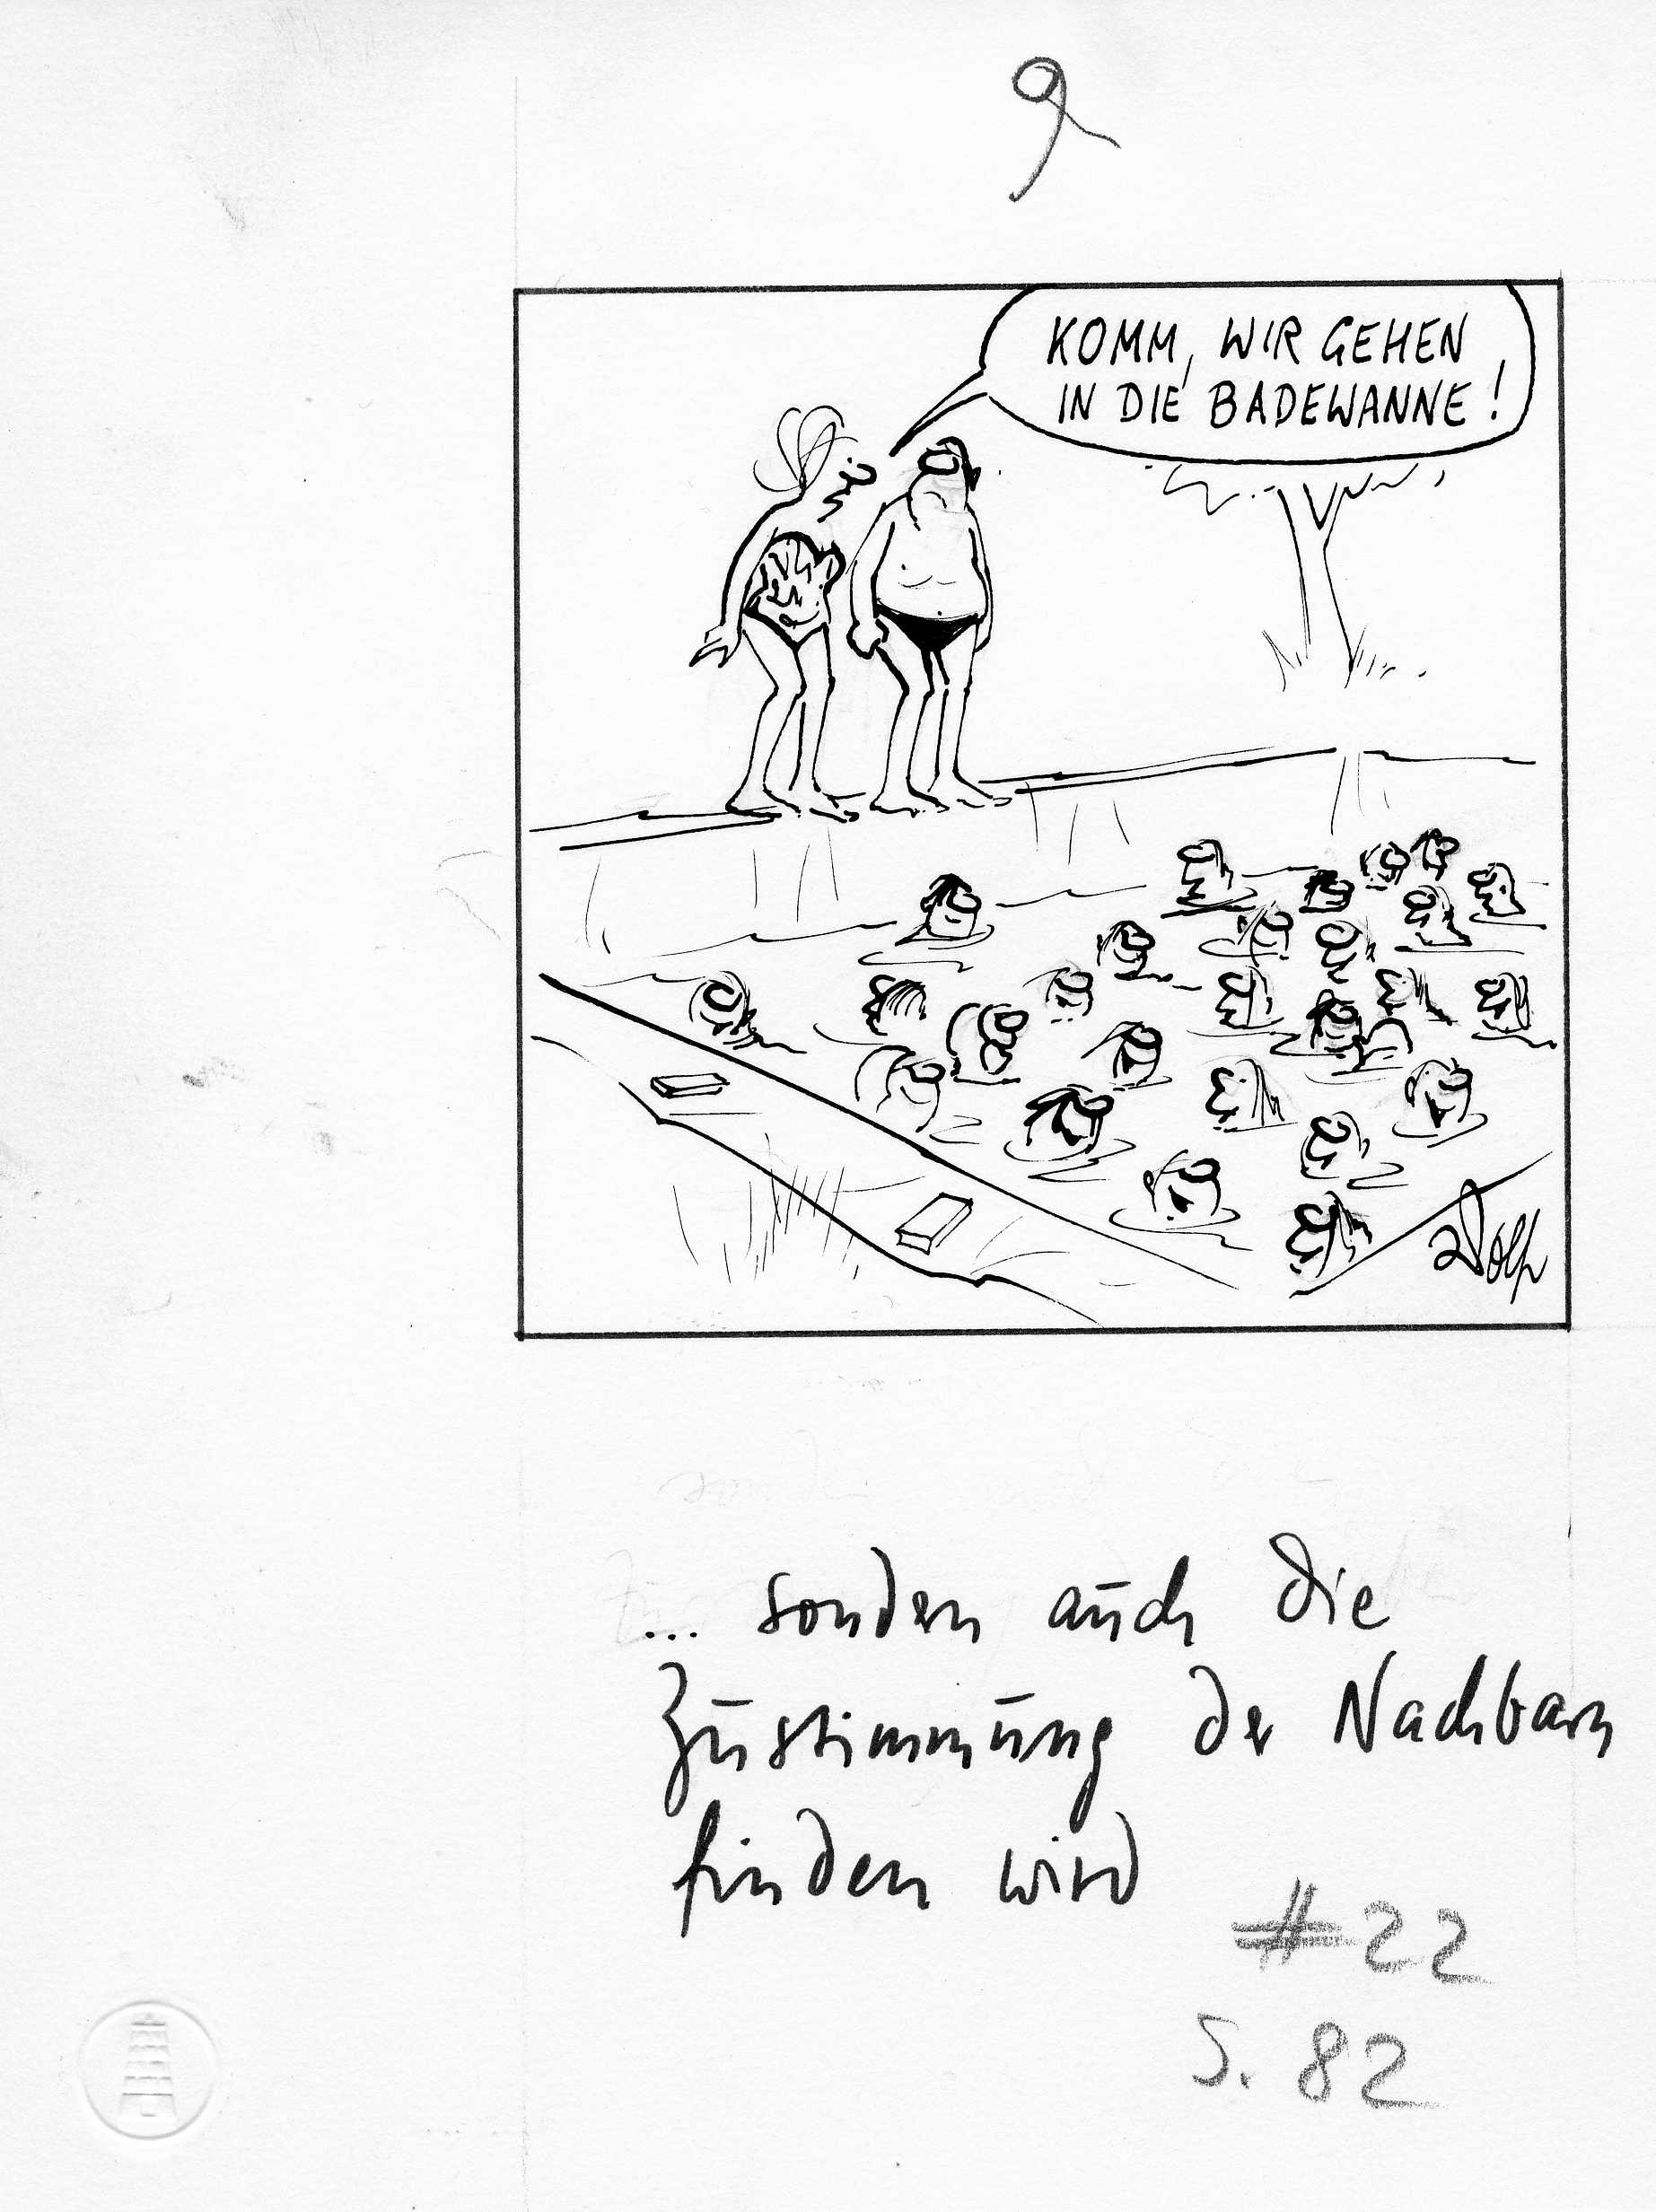 9
KOMM, WIR GEHEN
IN DIE BADEWANNE!
Wolf
... sondern auch die
Zustimmung der Nachbarn
finden wird
#22
S. 82